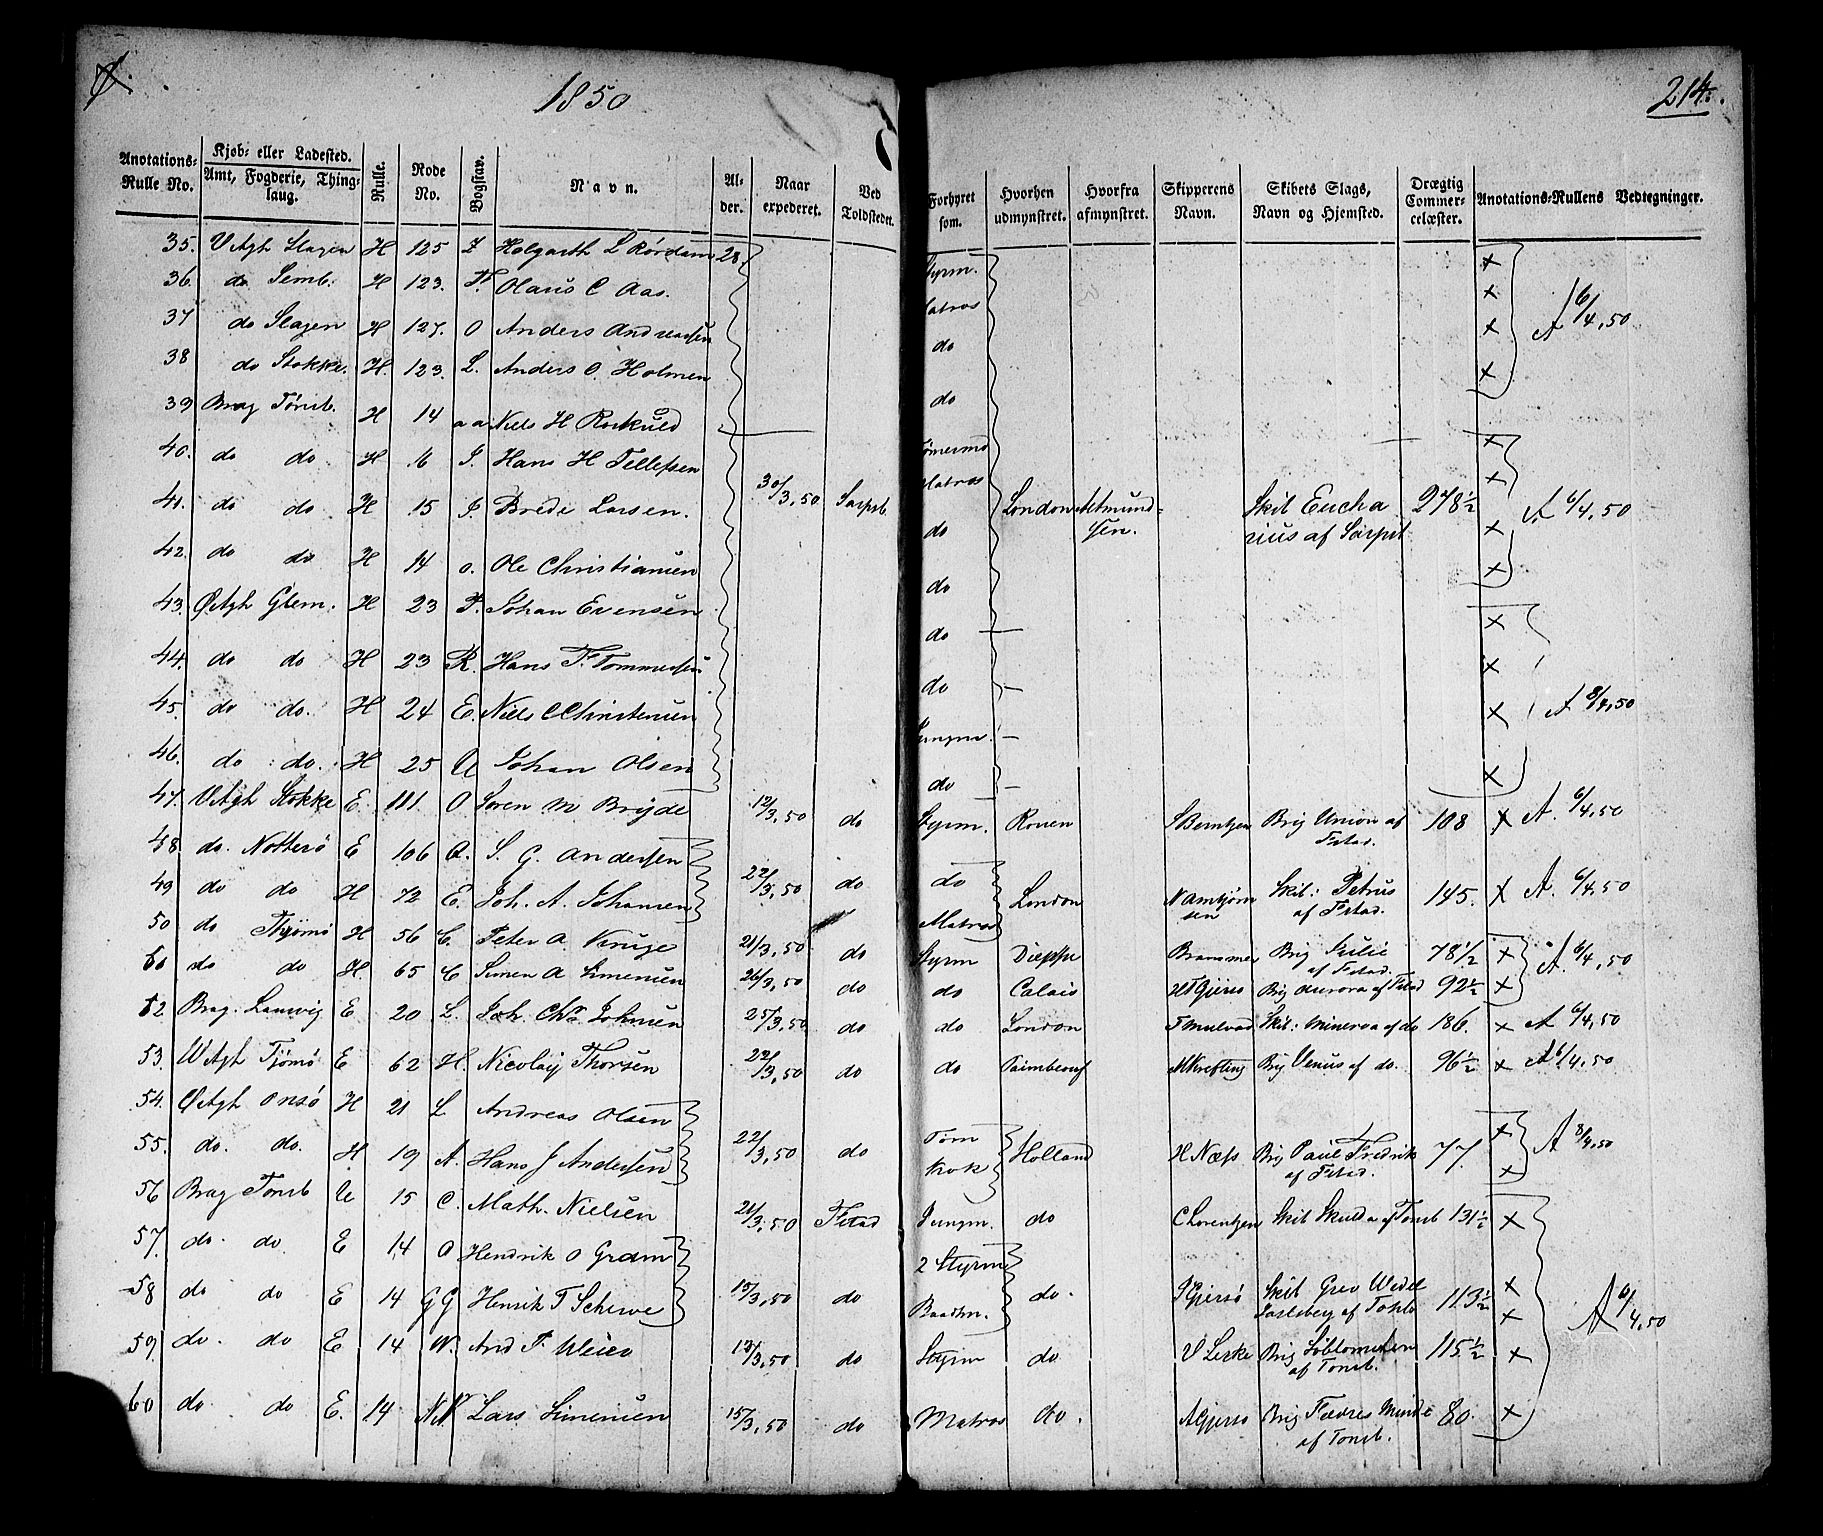 1850
214.
Anotations-Rulle No. | Kjøb- eller Ladested. Amt, Fogderie, Thinglaug. | Rulle. | Rode No. | Bogstav. | Navn. | Alder. | Naar expederet. | Ved Toldstedet. | Forhyret som. | Hvorhen udmynstret. | Hvorfra afmynstret. | Skipperens Navn. | Skibets Slags, Navn og Hjemsted. | Drægtig Commercelæster. | Anotations-Rullens Vedtegninger.
35. V Agh Slagen H 125 Z Holgarth L Rørdam 28 Styrm. x
36. do Semb: H 123. Olaus C Aas. Matros x A 6/4,50
37 do Slagen H 127. O Anders Andreasen do x
38 do Stokke. H. 123. L. Anders C. Holmen do x
39 Brag Tónsb. H 14 aa Niels H Tømermd x
40. do do H Hans H Tellefsen Matros x
41. do do H 15 J. Brede Larsen. 30/3,50 Sarpsb do London Skib Eucharius af Sarpsb 278½ x A 6/4,50
42. do do H 14 o. Ole Christiansen do x
43. Ø Agh Glem. H 23 P. Johan Evensen do — x
44. do do H 23 R. Hans T. Tommesen do — x
45. do do. H 24 E. Niels C Christensen Jungm. — x A 8/4,50
46. do do. H 25 Johan Olsen do — x
47. V Agh Stokke E. 111. O Søren M Bryde 12/3,50 do Styrm. Rouen S Berntzen Brig Union af Fstad. 108 x A. 6/4,50
48. do. Notterø E 106 A. S. G. Andersen 22/3,50 do do London N Amtjørnsen Skib: Petrus af Fstad. 145. x A. 6/4,50
49 do do H 72 E. Joh. A. Johansen Matros
50 do Thjømø H 56 C. Peter A. Kruge 21/3,50 do Styrm Dieppe Brammer Brig Julie af Fstad. 78½ x A. 6/4,50
51 do do H 65 C Simen A Simensen 26/3,50 do do Calais Brig Aurora af Fstad 92½ x
52. Brag. Laurvig E 20 L. Joh. Chr. Johnsen 25/3,50 do do London Skib: Minerva af do 186. x A 6/4,50
53. V Agh Tjømø E 62 H. Nicolaij Thorsen 22/3,50 do do M Krefting Brig Venus af do. 96½ x A 6/4,50
54. Ø Agh Onsø H 21 L Andreas Olsen Tøm x
55. do. do. H. 19 A. Hans J Andersen 22/3,50 do Kok Holland H Næss Brig Paul Fredrik af Fstad. 77. x A 8/4,50
56 Brag Tonsb 15 C. Math. Nielsen 21/3,50 Fstad Jungm. do C Lorentzen Skib Skulda af Tonsb 131½ x
57. do. do. E 14 O Hendrik O Gram 2 Styrm x
58 do do E 14 GG Henrik T Scherve 15/3,50 do Baadsm. do. Skib Grev Wedel Jarlsberg af Tonsb 113½ x A 6/4,50
59. do. do E 14 W. And T. Meier 13/3,50 do Styrm do Brig af Tonsb. 115½ x
60 do do E. 14 NN Lars Simensen 15/3,50 do Matros do. Brig Fædres Minde af Tonsb. 80. x